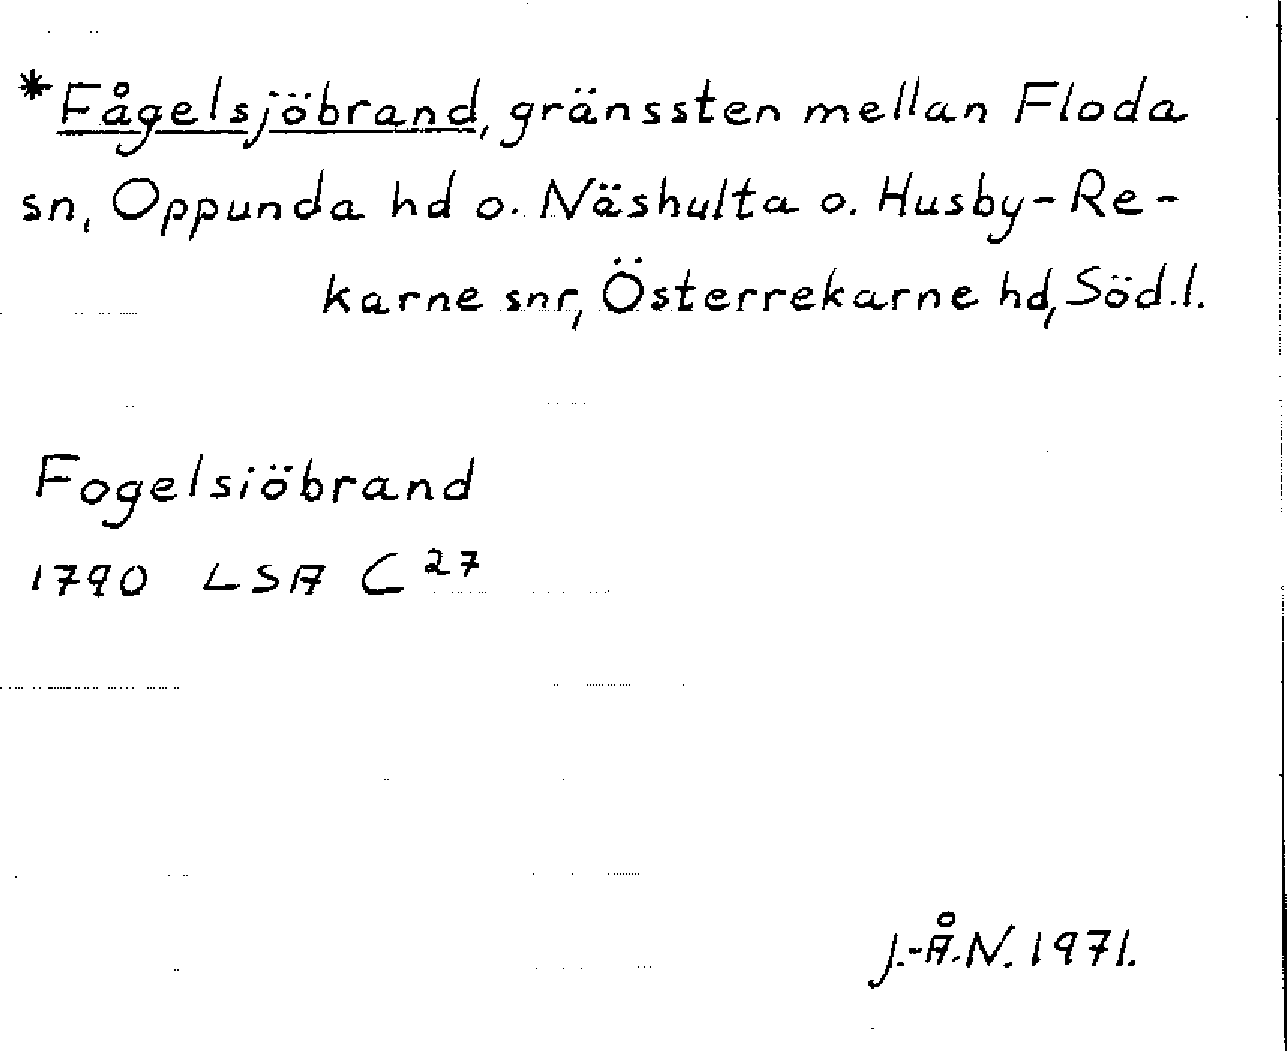 *Fågelsjöbrand, gränssten mellan Floda
sn, Oppunda hd o. Näshulta o. Husby-Re-
karne snr, Österrekarne hd, Söd.l.
Fogelsiöbrand
1790 LSA C 27
J.-Å.N. 1971.